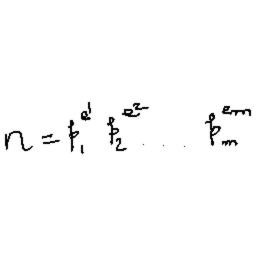 n = p₁^{e1} p₂^{e2} . . . pₘ^{em}